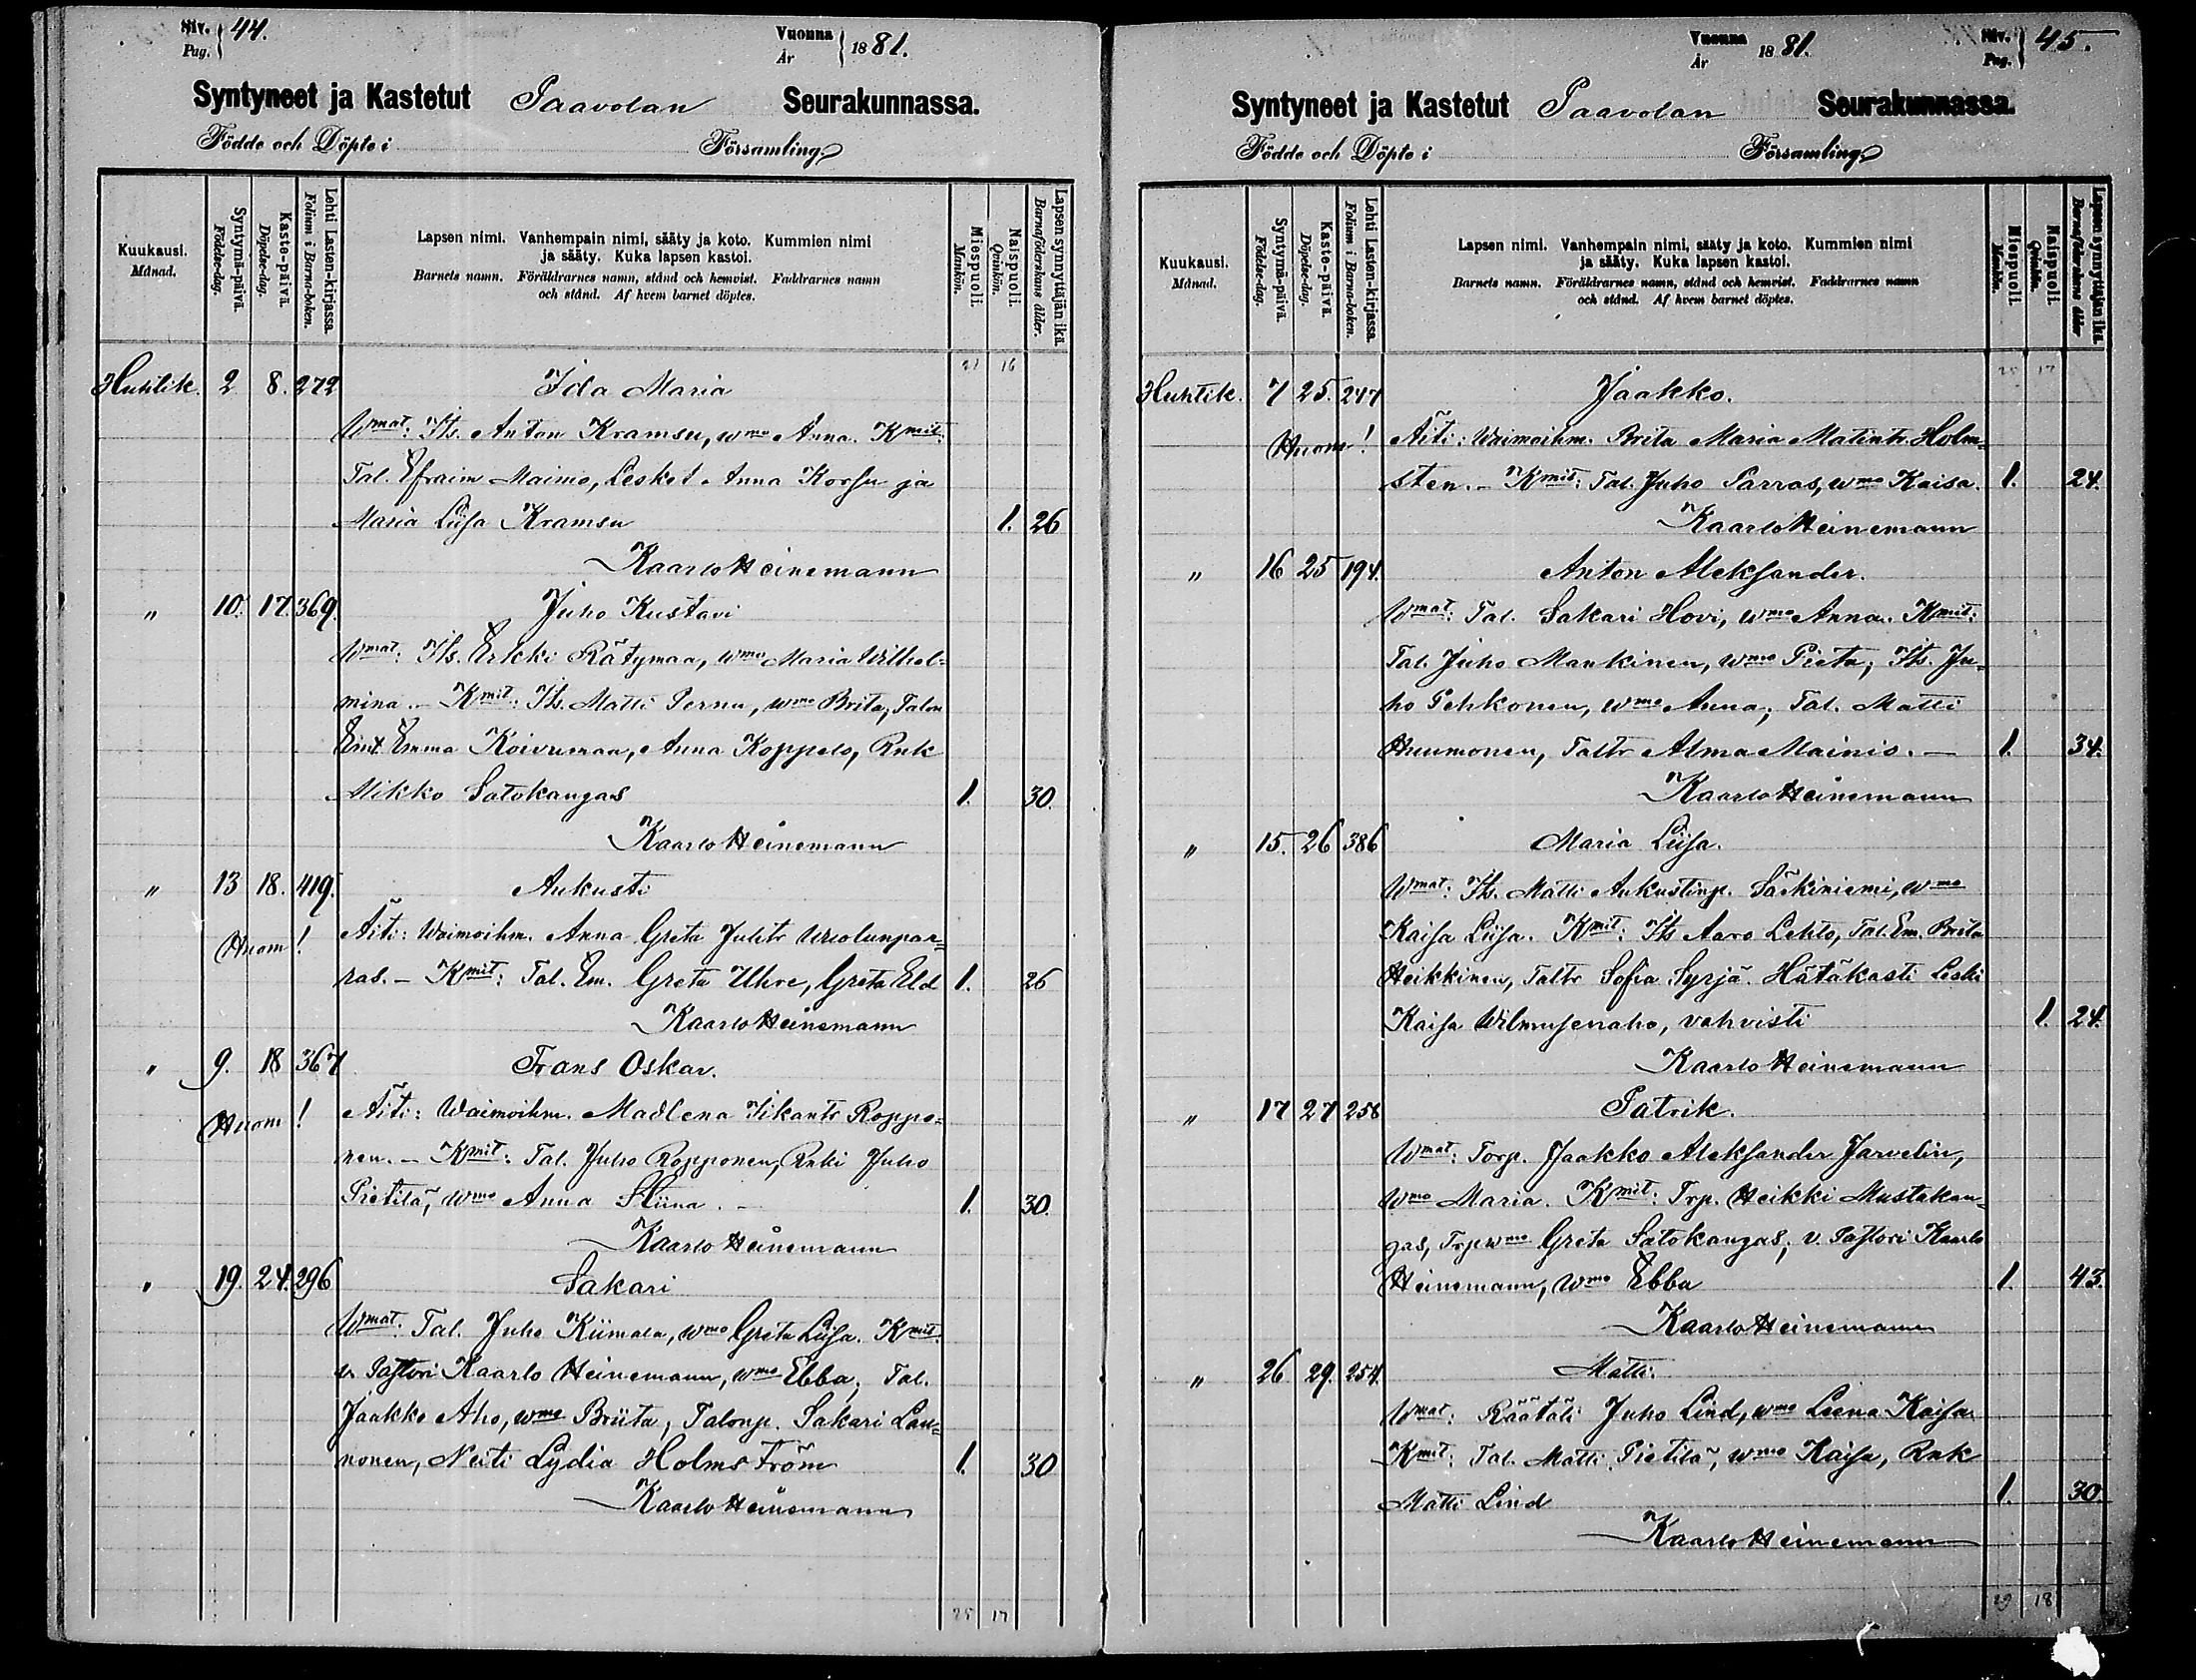 Siv. Pag. 44. Vuonna År 1881.
Syntyneet ja Kastetut Paavolan Seurakunnassa.
Födde och Döpte i Församling
Kuukausi. Månad. Syntymä-päivä. Födelse-dag. Kaste-päivä. Döpelse-dag. Lehti Lasten-kirjassa. Folium i Barna-boken. Lapsen nimi. Vanhempain nimi, sääty ja koto. Kummien nimi
ja sääty. Kuka lapsen kastoi.
Barnets namn. Föräldrarnes namn, stånd och hemvist. Faddrarnes namn
och stånd. Af hvem barnet döptes.
Miespuoli. Mankön. Naispuoli. Qvinkön. Lapsen synnyttäjän ikä. Barnaföderskans ålder.
21 16
Huhtik. 2 8. 272 Ida Maria
Wmat: Its. Anton Kramsu, wmo Anna. Kmit:
Tal. Efraim Maimo, Lesket Anna Korsu ja
Maria Liisa Kramsu 1. 26
Kaarlo Heinemann
" 10. 17. 369. Juho Kustavi
Wmat: Its. Erkki Rätymaa, wmo Maria Wilhel-
mina. - Kmit: Its. Matti Pernu, wmo Brita, Talon
Emma Koivumaa, Anna Koppelo, Rnk
Mikko Satokangas 1. 30.
Kaarlo Heinemann
" 13 18. 419. Aukusti
Huom! Äiti: Waimoihm. Anna Greta Juhtr
ras. - Kmit: Tal. Em. Greta Uhre, Greta Eld 1. 26
Kaarlo Heinemann
" 9. 18 367 Frans Oskar.
Huom! Äiti: Waimoihm. Madlena Iikantr Roppo-
nen. - Kmit: Tal. Juho Ropponen, Rnki Juho
Pietilä, wmo Anna Stiina. - 1. 30.
Kaarlo Heinemann
" 19. 24. 296 Sakari
Wmat: Tal. Juho Kiimala, wmo Greta Liisa. Kmit.
v. Pastori Kaarlo Heinemann, wmo Ebba, Tal.
Jaakko Aho, wmo Briita, Talonp. Sakari Lau-
nonen, Neiti Lydia Holmström 1. 30
Kaarlo Heinemann
25 17
Vuonna År 1881. Siv. Pag. 45.
Syntyneet ja Kastetut Paavolan Seurakunnassa.
Födde och Döpte i Församling
Kuukausi. Månad. Syntymä-päivä. Födelse-dag. Kaste-päivä. Döpelse-dag. Lehti Lasten-kirjassa. Folium i Barna-boken. Lapsen nimi. Vanhempain nimi, sääty ja koto. Kummien nimi
ja sääty. Kuka lapsen kastoi.
Barnets namn. Föräldrarnes namn, stånd och hemvist. Faddrarnes namn
och stånd. Af hvem barnet döptes.
Miespuoli. Mankön. Naispuoli. Qvinkön. Lapsen synnyttäjän ikä. Barnaföderskans ålder
25 17
Huhtik. 7 25. 247 Jaakko.
Huom! Äiti: Waimoihm. Brita Maria Matintr. Holm-
sten. - Kmit: Tal. Juho Parras, wmo Kaisa. 1. 24.
Kaarlo Heinemann
" 16 25 194. Anton Aleksander.
Wmat: Tal. Sakari Hovi, wmo Anna. Kmit:
Tal. Juho Mankinen, wmo Pieta, Its. Ju-
ho Pehkonen, wmo Anna; Tal. Matti
Huumonen, Taltr Alma Mainio. - 1. 34.
Kaarlo Heinemann
" 15. 26 386 Maria Liisa.
Wmat: Its. Matti Aukustinp. Särkiniemi, wmo
Kaisa Liisa. Kmit: Its Aaro Lehto, Tal. Em. Brita
Heikkinen, Taltr Sofia Syrjä. Hätäkasti Leski
Kaisa Wilmusenaho, vahvisti 1. 24.
Kaarlo Heinemann
" 17 27 258 Patrik.
Wmat: Torp. Jaakko Aleksander Jarvelin,
wmo Maria. Kmit: Trp. Heikki Mustakan-
gas, Trpwmo Greta Satokangas; v. Pastori Kaarlo
Heinemann, wmo Ebba 1. 43.
Kaarlo Heinemann
" 26 29. 254. Matti.
Wmat: Räätäli Juho Lind, wmo Liena Kaisa
Kmit: Tal. Matti Pietilä, wmo Kaisa, Rnk
Matti Lind 1. 30
Kaarlo Heinemann
29 18